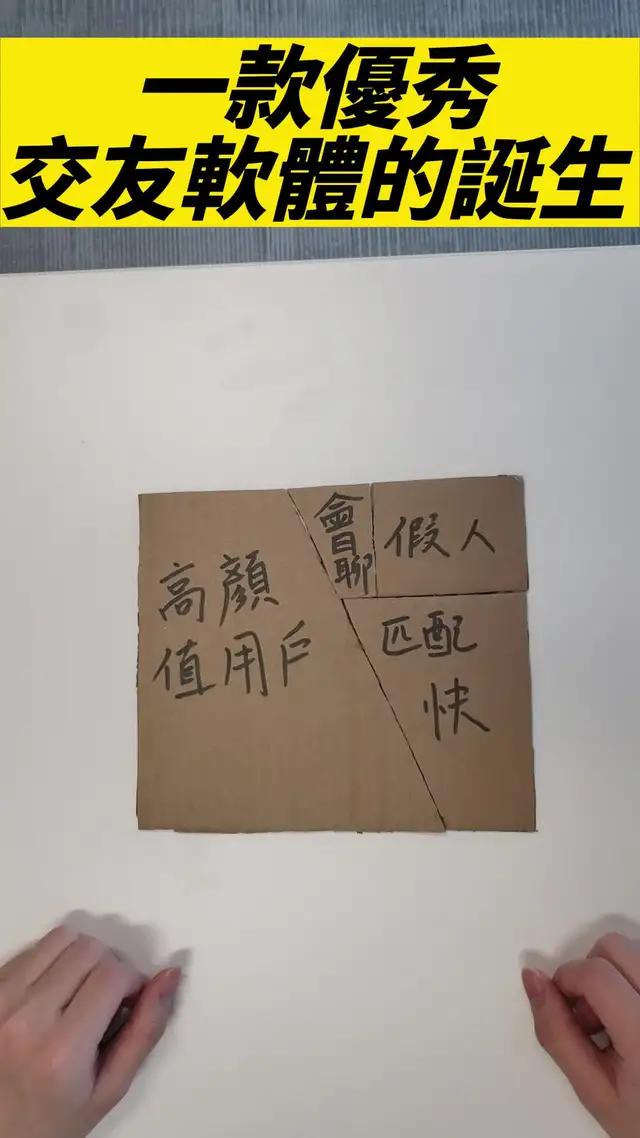 一款優秀
交友軟體的誕生
高顏
值用戶
會
聊
假人
匹配
快